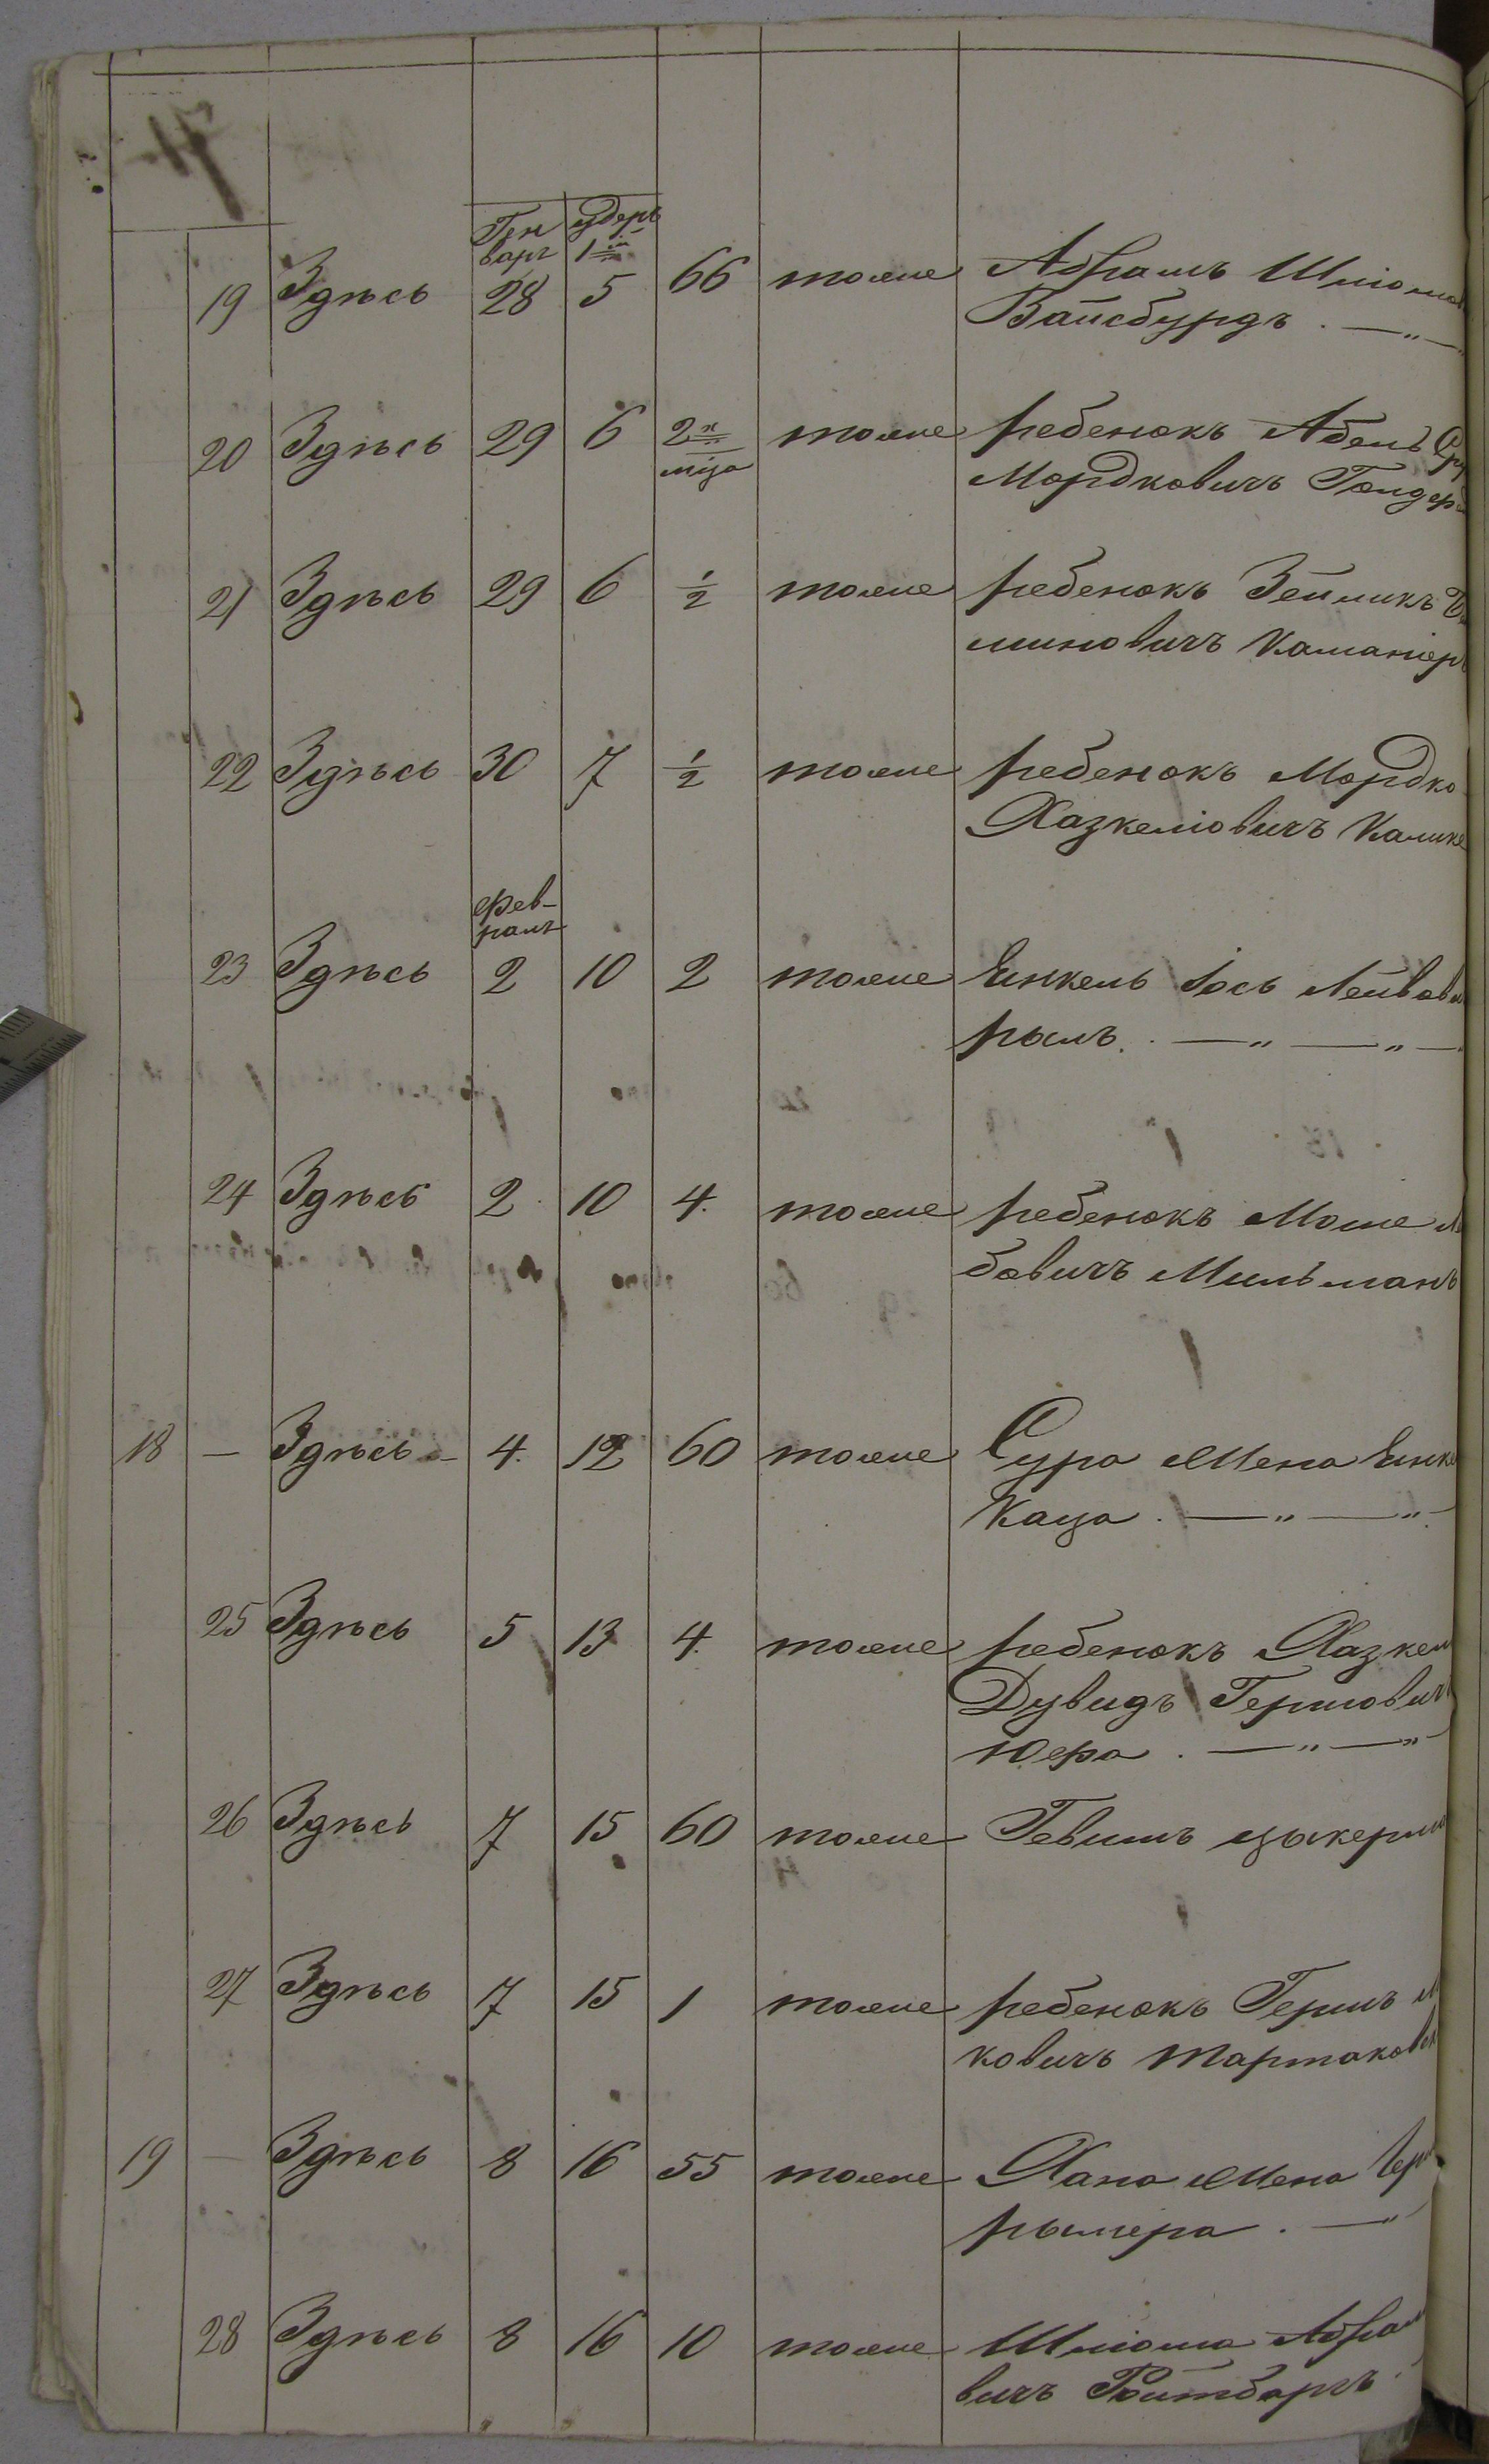 Ген удеръ
варг 1й
19 Здѣсь 28 5 66 тоже Абрамъ Шліомов
Вайсбурдъ . — " —
20 Здѣсь 29 6 2х тоже ребенокъ
мѣца Мордковичъ
21 Здѣсь 29 6 1/2 тоже ребенокъ Зейликъ
миновичъ
22 Здѣсь 30 7 1/2 тоже ребенокъ Мордко
Хазкеліовичъ
фев-
раль
23 Здѣсь 2 10 2 тоже Янкель Іось Лейбов
рымъ. . — " — " —
24 Здѣсь 2 10 4. тоже ребенокъ Моше
бовичъ Мильманъ
18 — Здѣсь — 4. 12 60 тоже Сура жена Янке
Каца . — " — "
25 Здѣсь 5 13 4. тоже ребенокъ Хазкел
Дувидъ Гершович
Юера . — " — "
26 Здѣсь 7 15 60 тоже цыкерм
27 Здѣсь 7 15 1 тоже ребенокъ Гершъ
ковичъ Тартаков
19 — Здѣсь 8 16 55 тоже Хана жена Гер
рымера . — "
28 Здѣсь 8 16 10 тоже Шліома Абрам
вичъ Ройтбаргъ